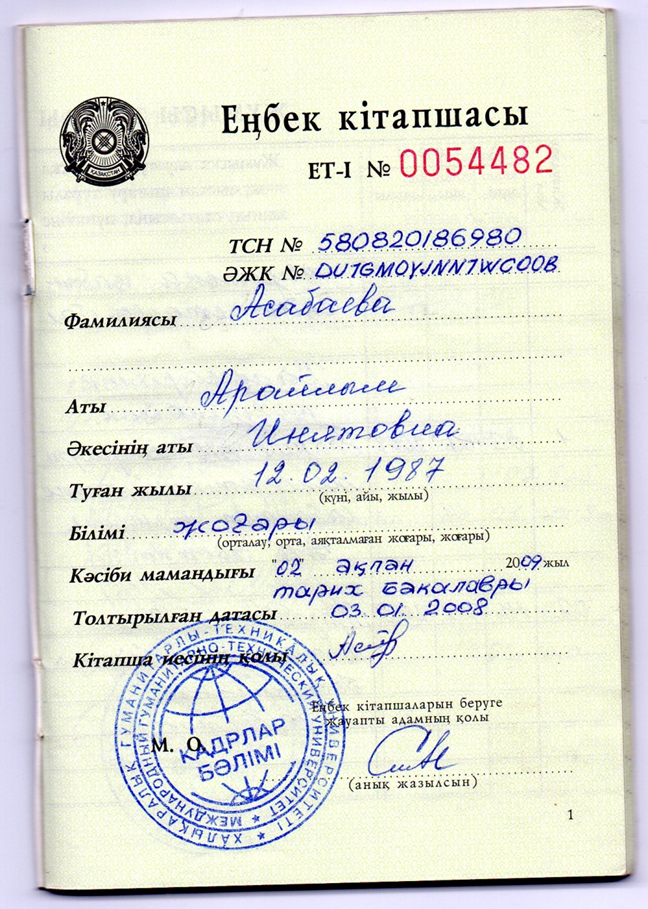 ҚАЗАҚСТАН
Еңбек кітапшасы
ЕТ-I № 0054482
ТСН № 580820186980
ӘЖК № DUTGM0YJNNTWC00B
Фамилиясы Асабаева
Аты Арайлым
Әкесінің аты Инятовна
Туған жылы 12.02.1987
(күні, айы, жылы)
Білімі жоғары
(орталау, орта, аяқталмаған жоғары, жоғары)
Кәсіби мамандығы "02" ақпан 2009 жыл
тарих бакалавры
Толтырылған датасы 03.01.2008
Кітапша иесінің қолы
Еңбек кітапшаларын беруге
жауапты адамның қолы
М. О.
(анық жазылсын)
ХАЛЫҚАРАЛЫҚ ГУМАНИТАРЛЫ-ТЕХНИКАЛЫҚ УНИВЕРСИТЕТІ
МЕЖДУНАРОДНЫЙ ГУМАНИТАРНО-ТЕХНИЧЕСКИЙ УНИВЕРСИТЕТ
КАДРЛАР
БӨЛІМІ
1